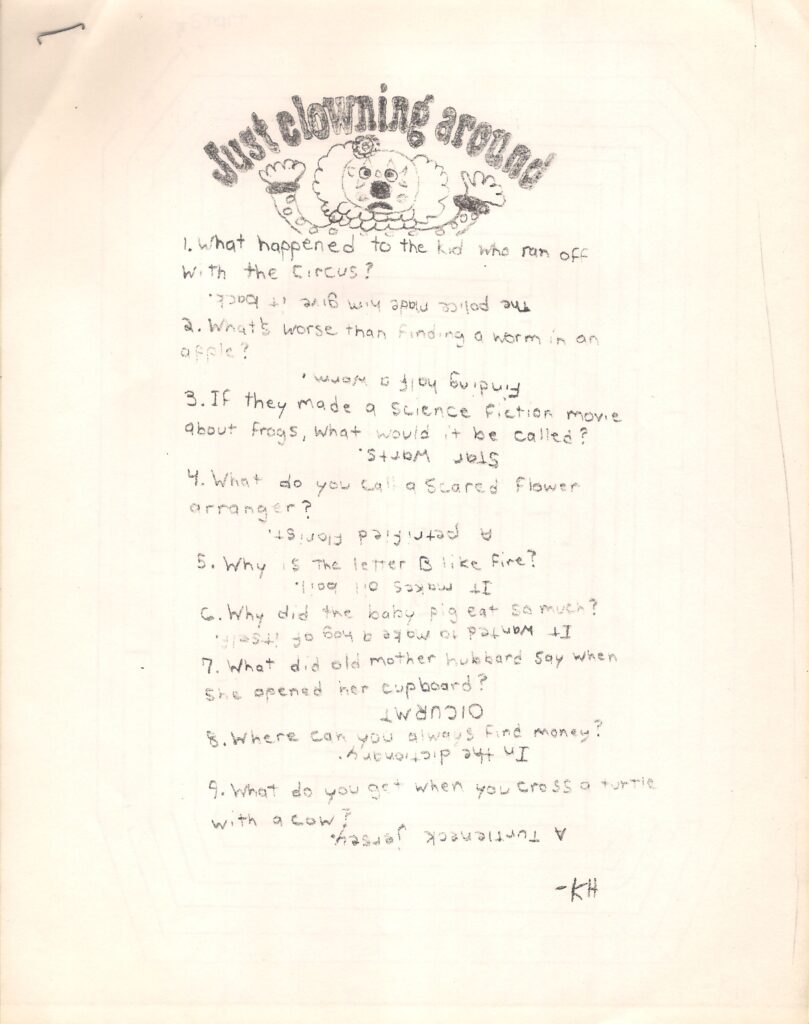 Just clowning around
1. What happened to the kid who ran off
with the circus?
The police made him give it back.
2. What's worse than finding a worm in an
apple?
Finding half a worm.
3. If they made a science fiction movie
about frogs, what would it be called?
Star Warts.
4. What do you call a scared flower
arranger?
A petrified florist.
5. Why is the letter B like fire?
It makes oil boil.
6. Why did the baby pig eat so much?
It wanted to make a hog of itself.
7. What did old mother hubbard say when
she opened her cupboard?
OICURMT
8. Where can you always find money?
In the dictionary.
9. What do you get when you cross a turtle
with a cow?
A Turtleneck jersey.
-KH